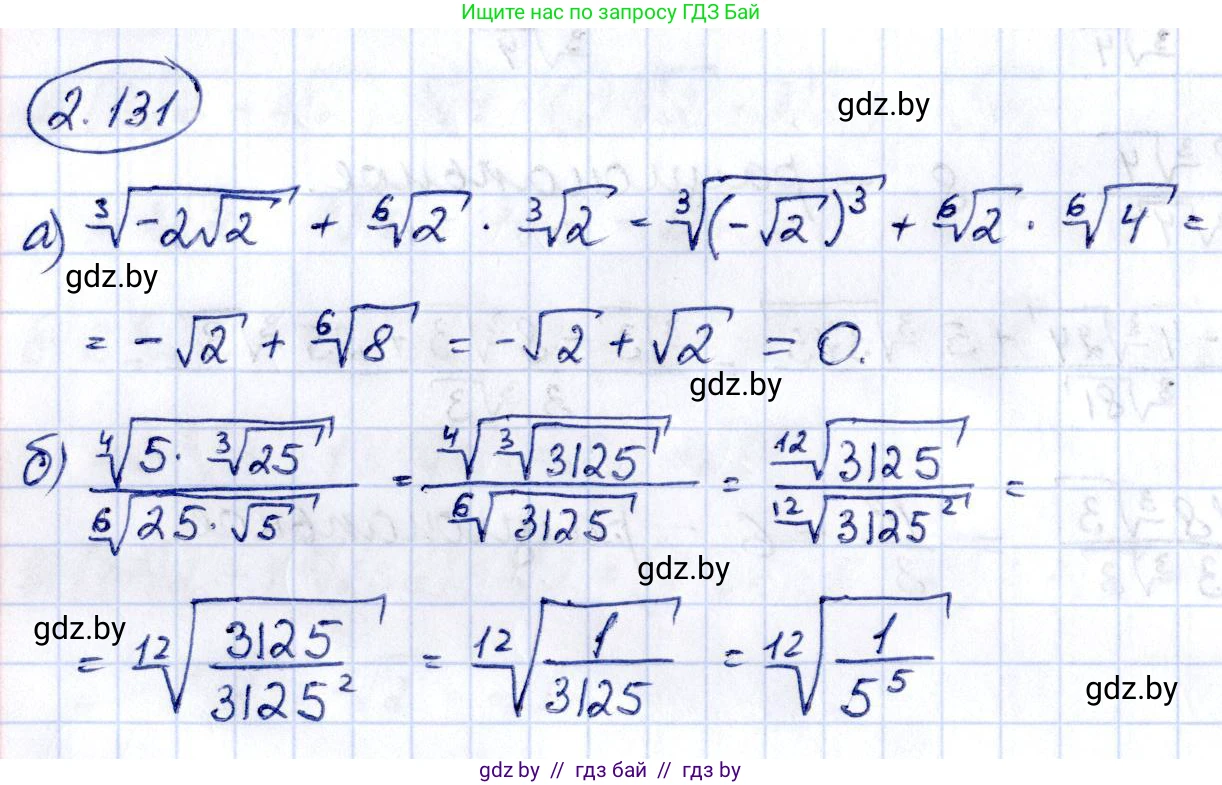 Ищите нас по запросу ГДЗ Бай
2.131
gdz.by
а) ∛(-2√2) + ⁶√2 · ∛2 = ∛((-√2)³) + ⁶√2 · ⁶√4 =
gdz.by
= -√2 + ⁶√8 = -√2 + √2 = 0.
gdz.by
б) ⁴√(5 · ∛25) / ⁶√(25 · √5) = ⁴√(∛3125) / ⁶√3125 = ¹²√3125 / ¹²√(3125²) =
gdz.by
gdz.by
= ¹²√(3125 / 3125²) = ¹²√(1 / 3125) = ¹²√(1 / 5⁵)
gdz.by
gdz by // гдз бай // гдз by